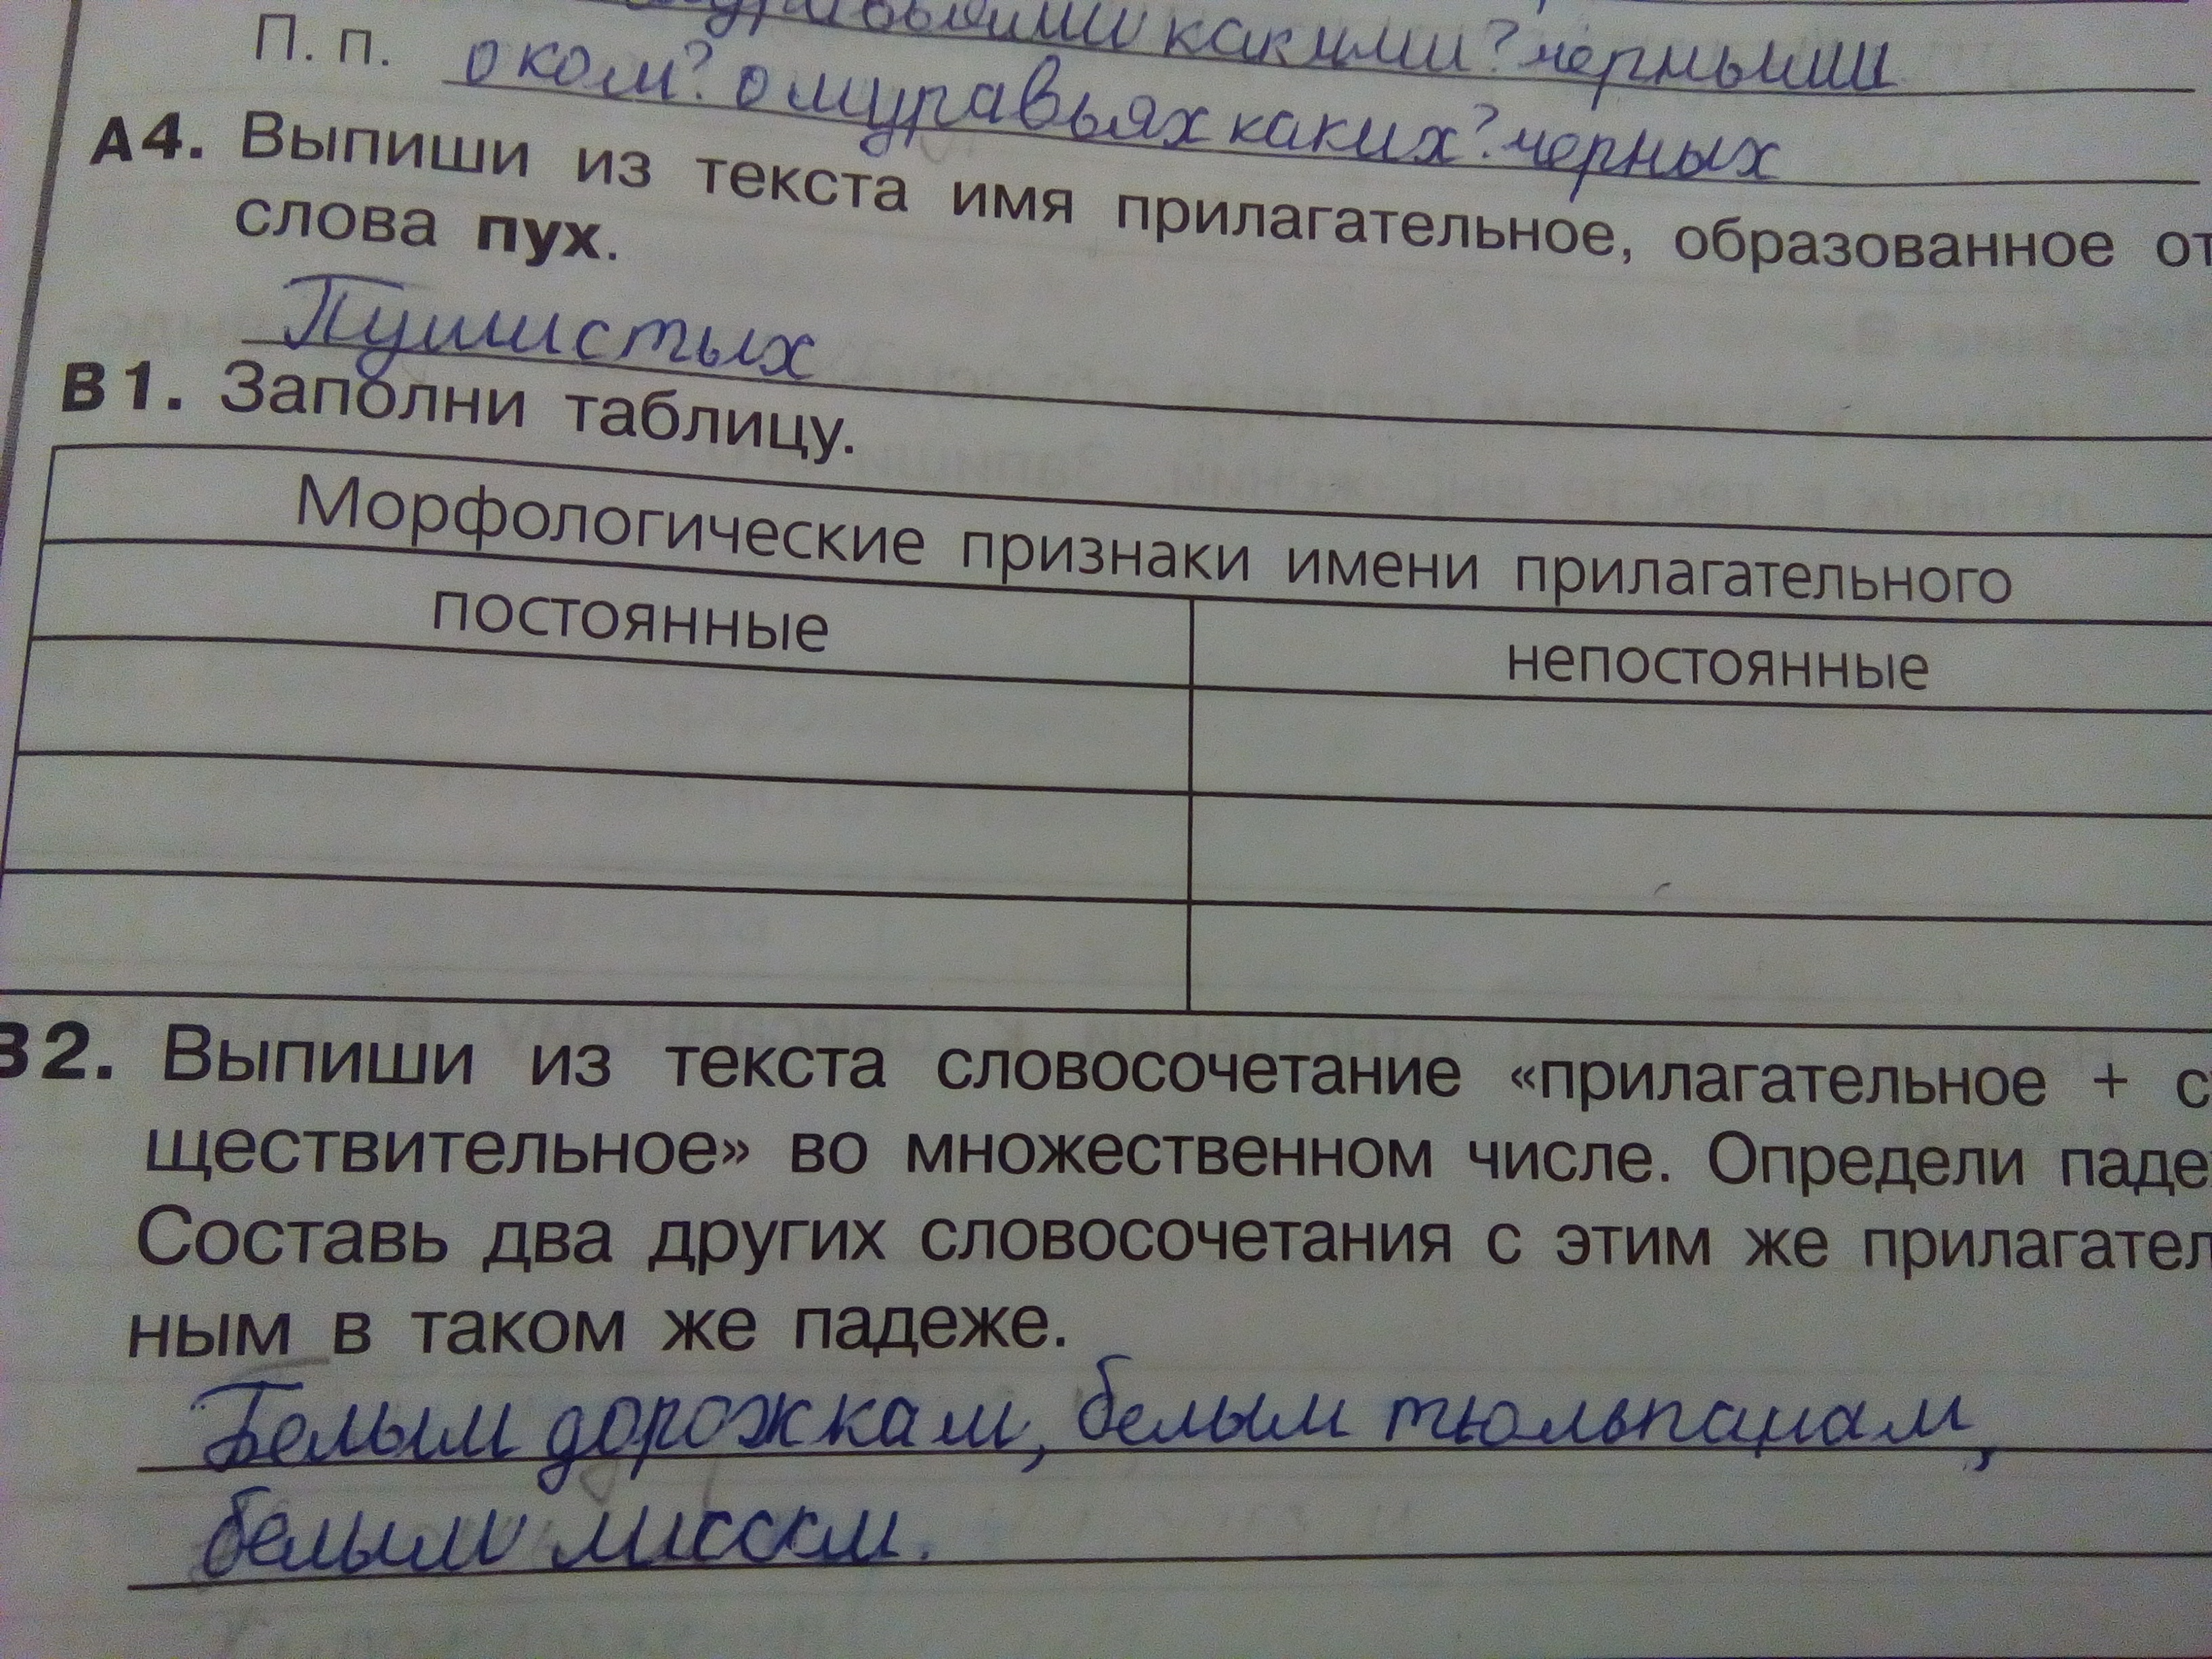 муравьями какими? черными
П. п. о ком? о муравьях каких? черных
А4. Выпиши из текста имя прилагательное, образованное от
слова пух.
Пушистых
В1. Заполни таблицу.
Морфологические признаки имени прилагательного
постоянные непостоянные
В2. Выпиши из текста словосочетание «прилагательное + с
ществительное» во множественном числе. Определи паде
Составь два других словосочетания с этим же прилагател
ным в таком же падеже.
Белым дорожкам, белым тюльпанам,
белым